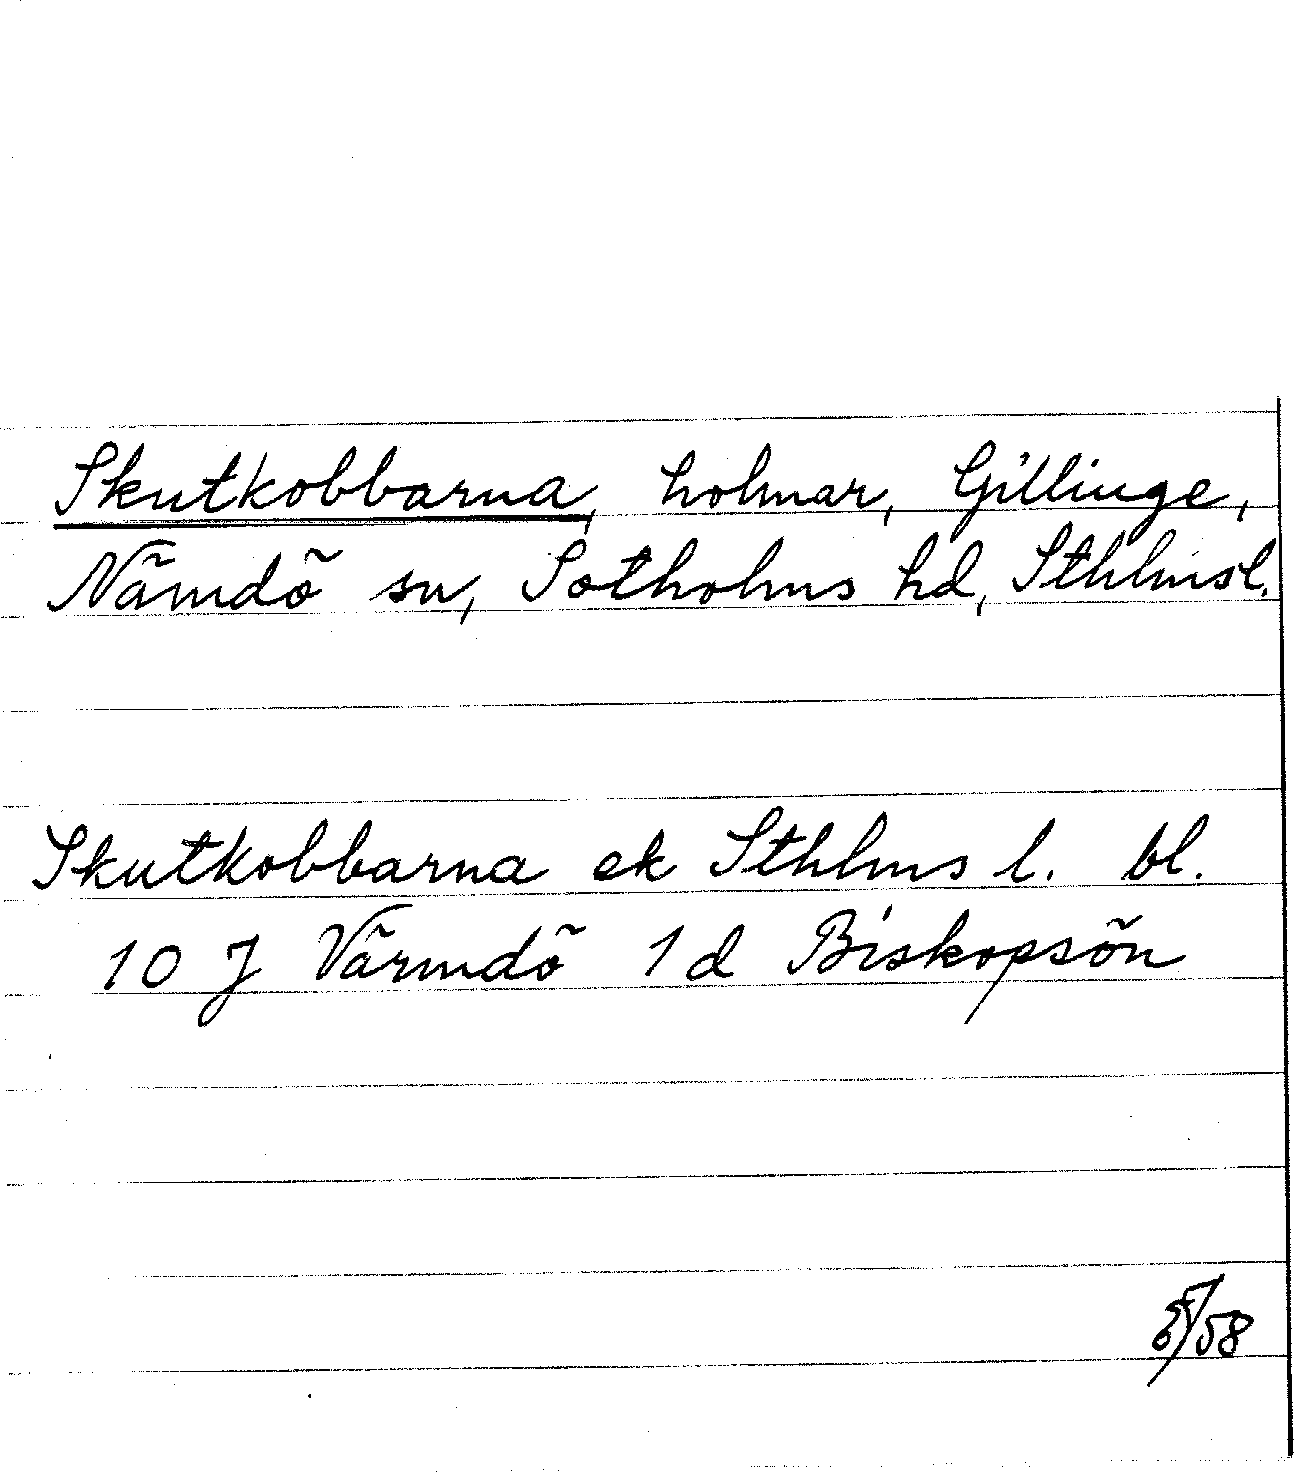 Skutkobbarna, holmar, Gillinge,
Nämdö sn, Sotholms hd, Sthlmsl.
Skutkobbarna ek Sthlms l. bl.
10 J Värmdö 1 d Biskopsön
58